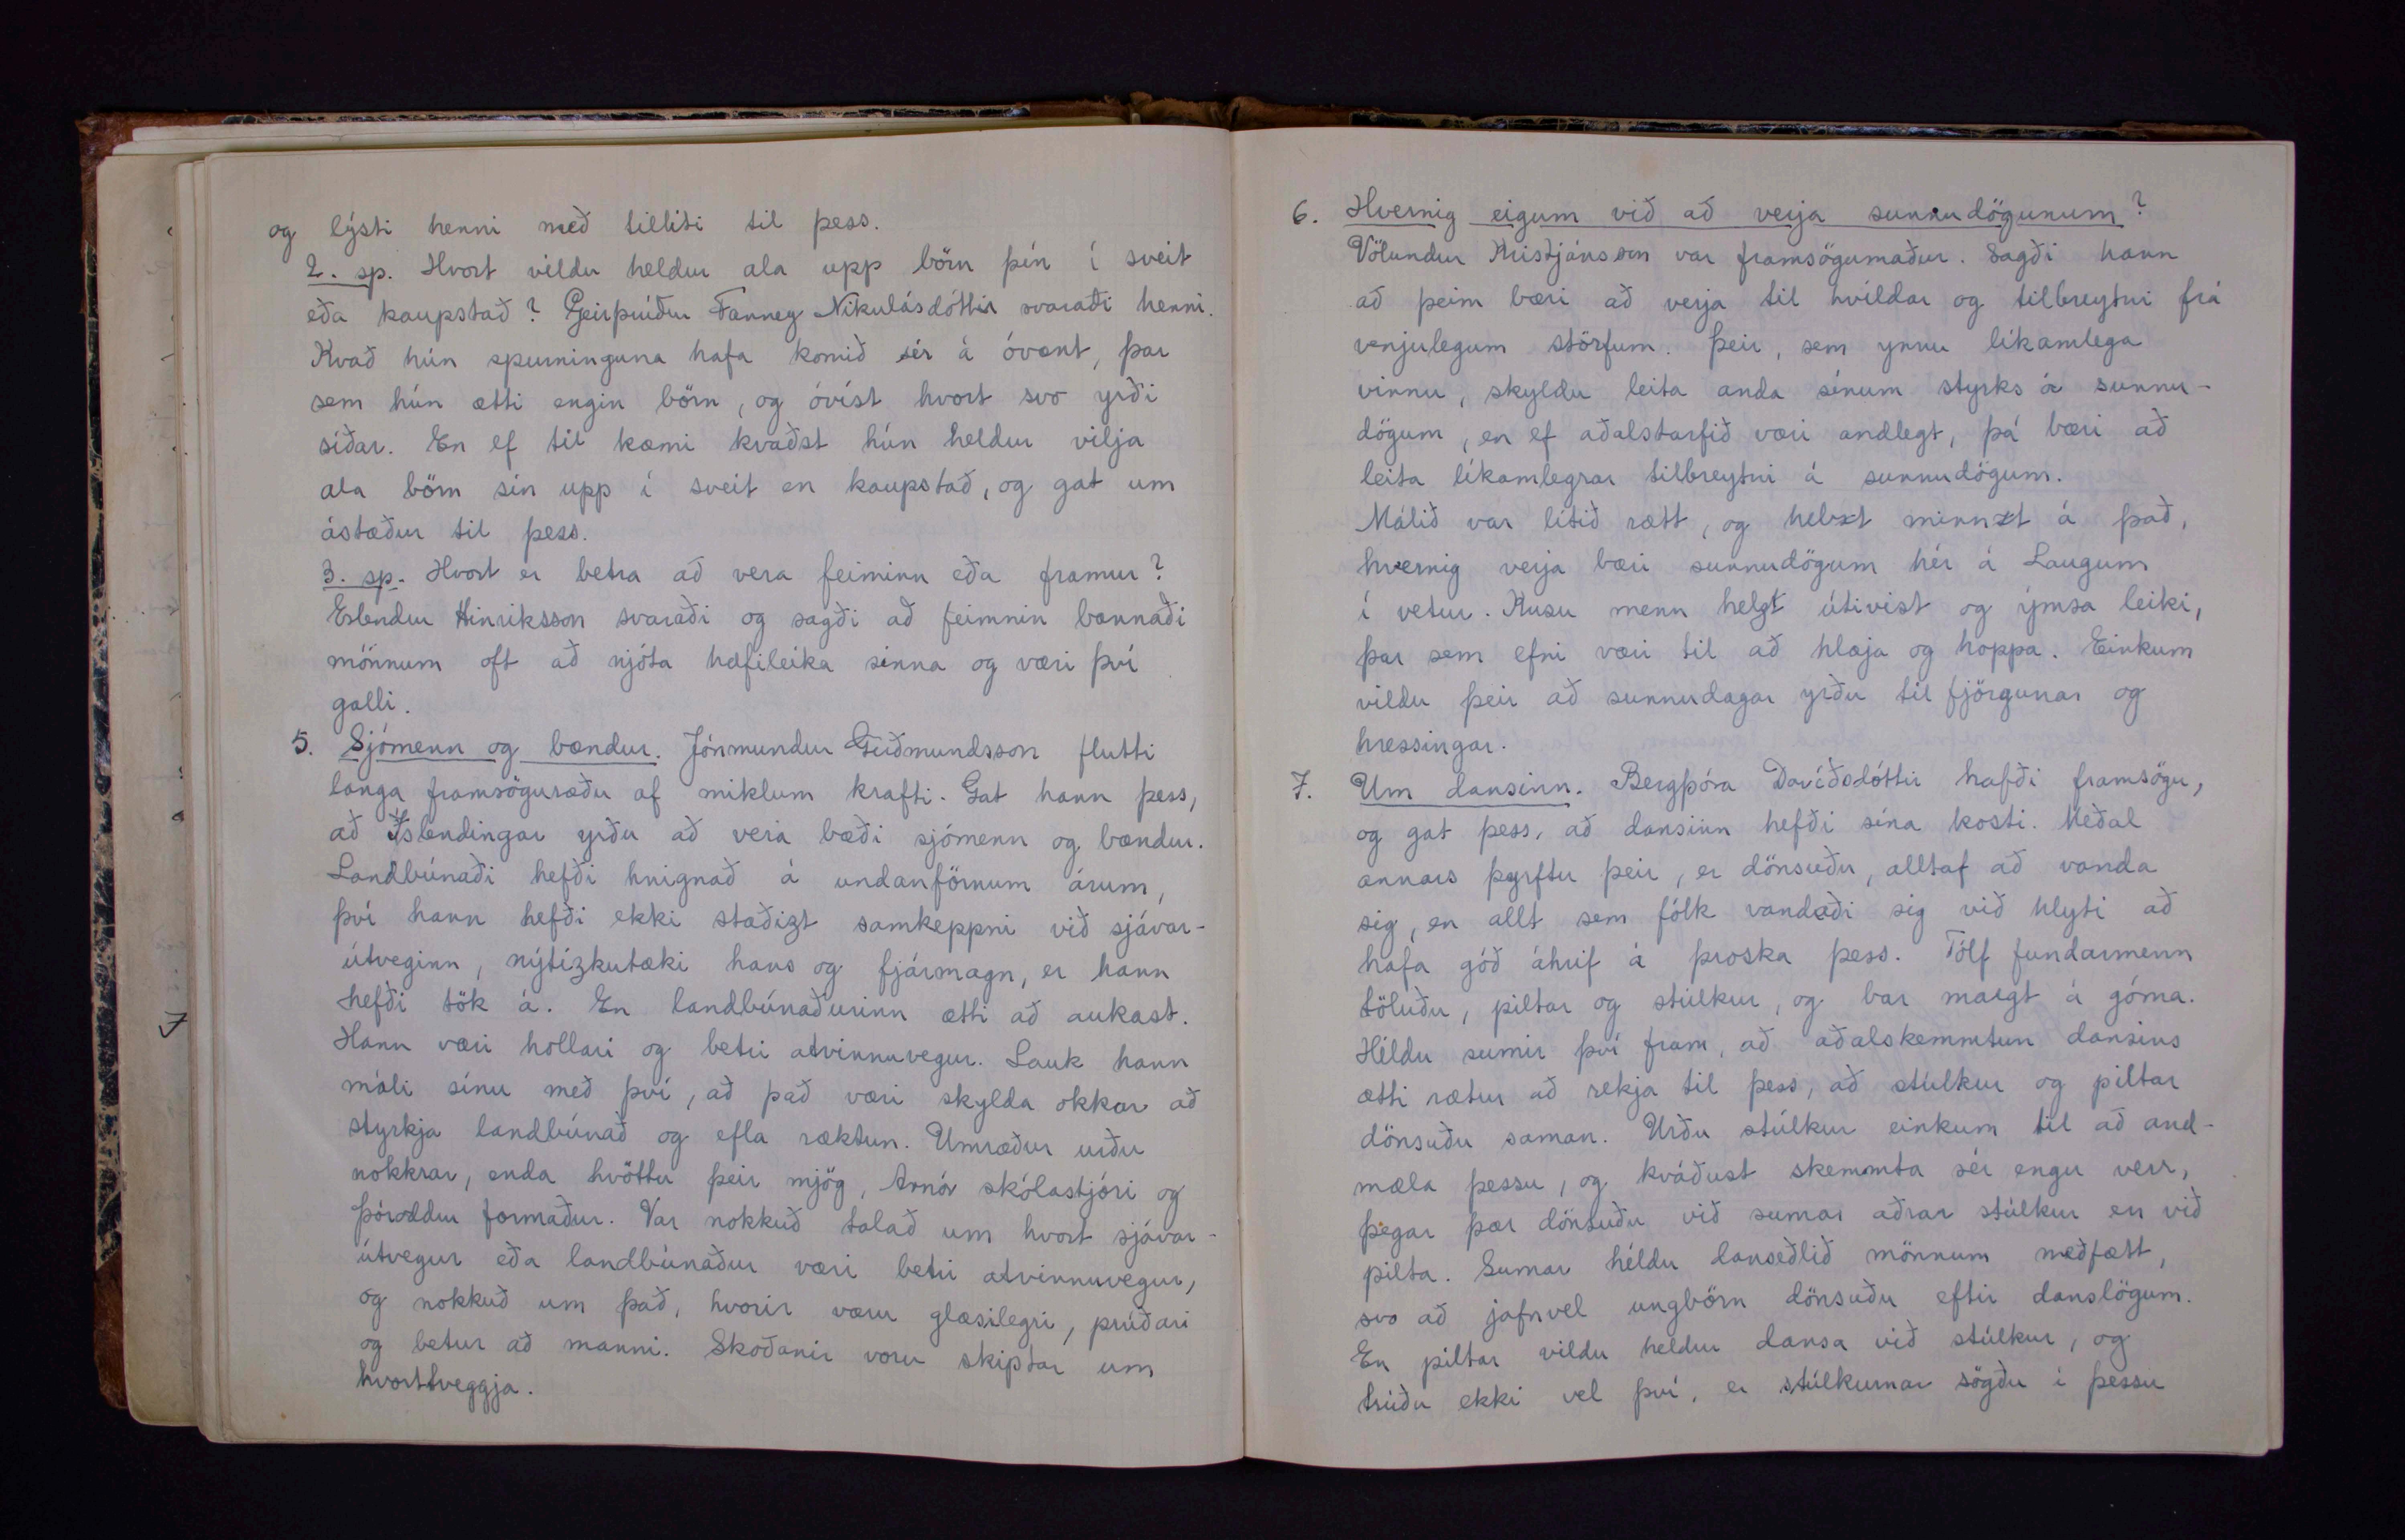 og lýsti henni með tilliti til þess.
2. sp. Hvort vildu heldur ala upp börn þín í sveit
eða kaupstað? Geirþrúður Fanney Nikulásdóttir svaraði henni.
Kvað hún spurninguna hafa komið sér á óvænt, þar
sem hún ætti engin börn, og óvíst hvort svo yrði
síðar. En ef til kæmi kvaðst hún heldur vilja
ala börn sín upp í sveit en kaupstað, og gat um
ástæður til þess.
3. sp. Hvort er betra að vera feiminn eða framur?
Erlendur Hinriksson svaraði og sagði að feimnin bannaði
mönnum oft að njóta hæfileika sinna og væri því
galli.
5. Sjómenn og bændur. Jónmundur Guðmundsson flutti
langa framsöguræðu af miklum krafti. Gat hann þess,
að Íslendingar yrðu að vera bæði sjómenn og bændur.
Landbúnaði hefði hnignað á undanförnum árum,
því hann hefði ekki staðizt samkeppni við sjávar-
útveginn, nýtízkutæki hans og fjármagn, er hann
hefði tök á. En landbúnaðurinn ætti að aukast.
Hann væri hollari og betri atvinnuvegur. Lauk hann
máli sínu með því, að það væri skylda okkar að
styrkja landbúnað og efla ræktun. Umræður urðu
nokkrar, enda hvöttu þeir mjög, Arnór skólastjóri og
Þóroddur formaður. Var nokkuð talað um hvort sjávar-
útvegur eða landbúnaður væri betri atvinnuvegur,
og nokkuð um það, hvorir væru glæsilegri, prúðari
og betur að manni. Skoðanir voru skiptar um
hvorttveggja.
6. Hvernig eigum við að verja sunnudögunum?
Völundur Kristjánsson var framsögumaður. Sagði hann
að þeim bæri að verja til hvíldar og tilbreytni frá
venjulegum störfum. Þeir, sem ynnu líkamlega
vinnu, skyldu leita anda sínum styrks á sunnu-
dögum, en ef aðalstarfið væri andlegt, þá bæri að
leita líkamlegrar tilbreytni á sunnudögum.
Málið var lítið rætt, og helzt minnzt á það,
hvernig verja bæri sunnudögum hér á Laugum
í vetur. Kusu menn helzt útivist og ýmsa leiki,
þar sem efni væri til að hlæja og hoppa. Einkum
vildu þeir að sunnudagar yrðu til fjörgunar og
hressingar.
7. Um dansinn. Bergþóra Davíðsdóttir hafði framsögu,
og gat þess, að dansinn hefði sína kosti. Meðal
annars þyrftu þeir, er dönsuðu, alltaf að vanda
sig, en allt sem fólk vandaði sig við hlyti að
hafa góð áhrif á þroska þess. Tólf fundarmenn
töluðu, piltar og stúlkur, og bar margt á góma.
Héldu sumir því fram, að aðalskemmtun dansins
ætti rætur að rekja til þess, að stúlkur og piltar
dönsuðu saman. Urðu stúlkur einkum til að and-
mæla þessu, og kváðust skemmta sér engu verr,
þegar þær dönsuðu við sumar aðrar stúlkur en við
pilta. Sumar héldu danseðlið mönnum meðfætt,
svo að jafnvel ungbörn dönsuðu eftir danslögum.
En piltar vildu heldur dansa við stúlkur, og
trúðu ekki vel því, er stúlkurnar sögðu í þessu